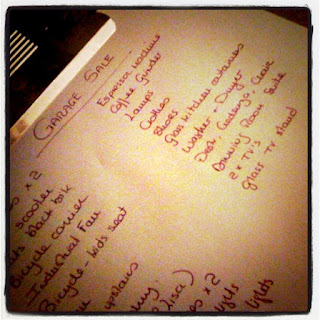 GARAGE SALE
Espresso machine
Coffee Grinder
Lamps
Clothes
Shoes
Glass kitchen containers
Washer - Dryer
Desk, Chair
Dining Room Suite
2x TV's
Glass TV stand
x 2
Scooter
Black
Bicycle carrier
Industrial Fan
Bicycle - kids seat
upstairs
Lisa)
x2
lights